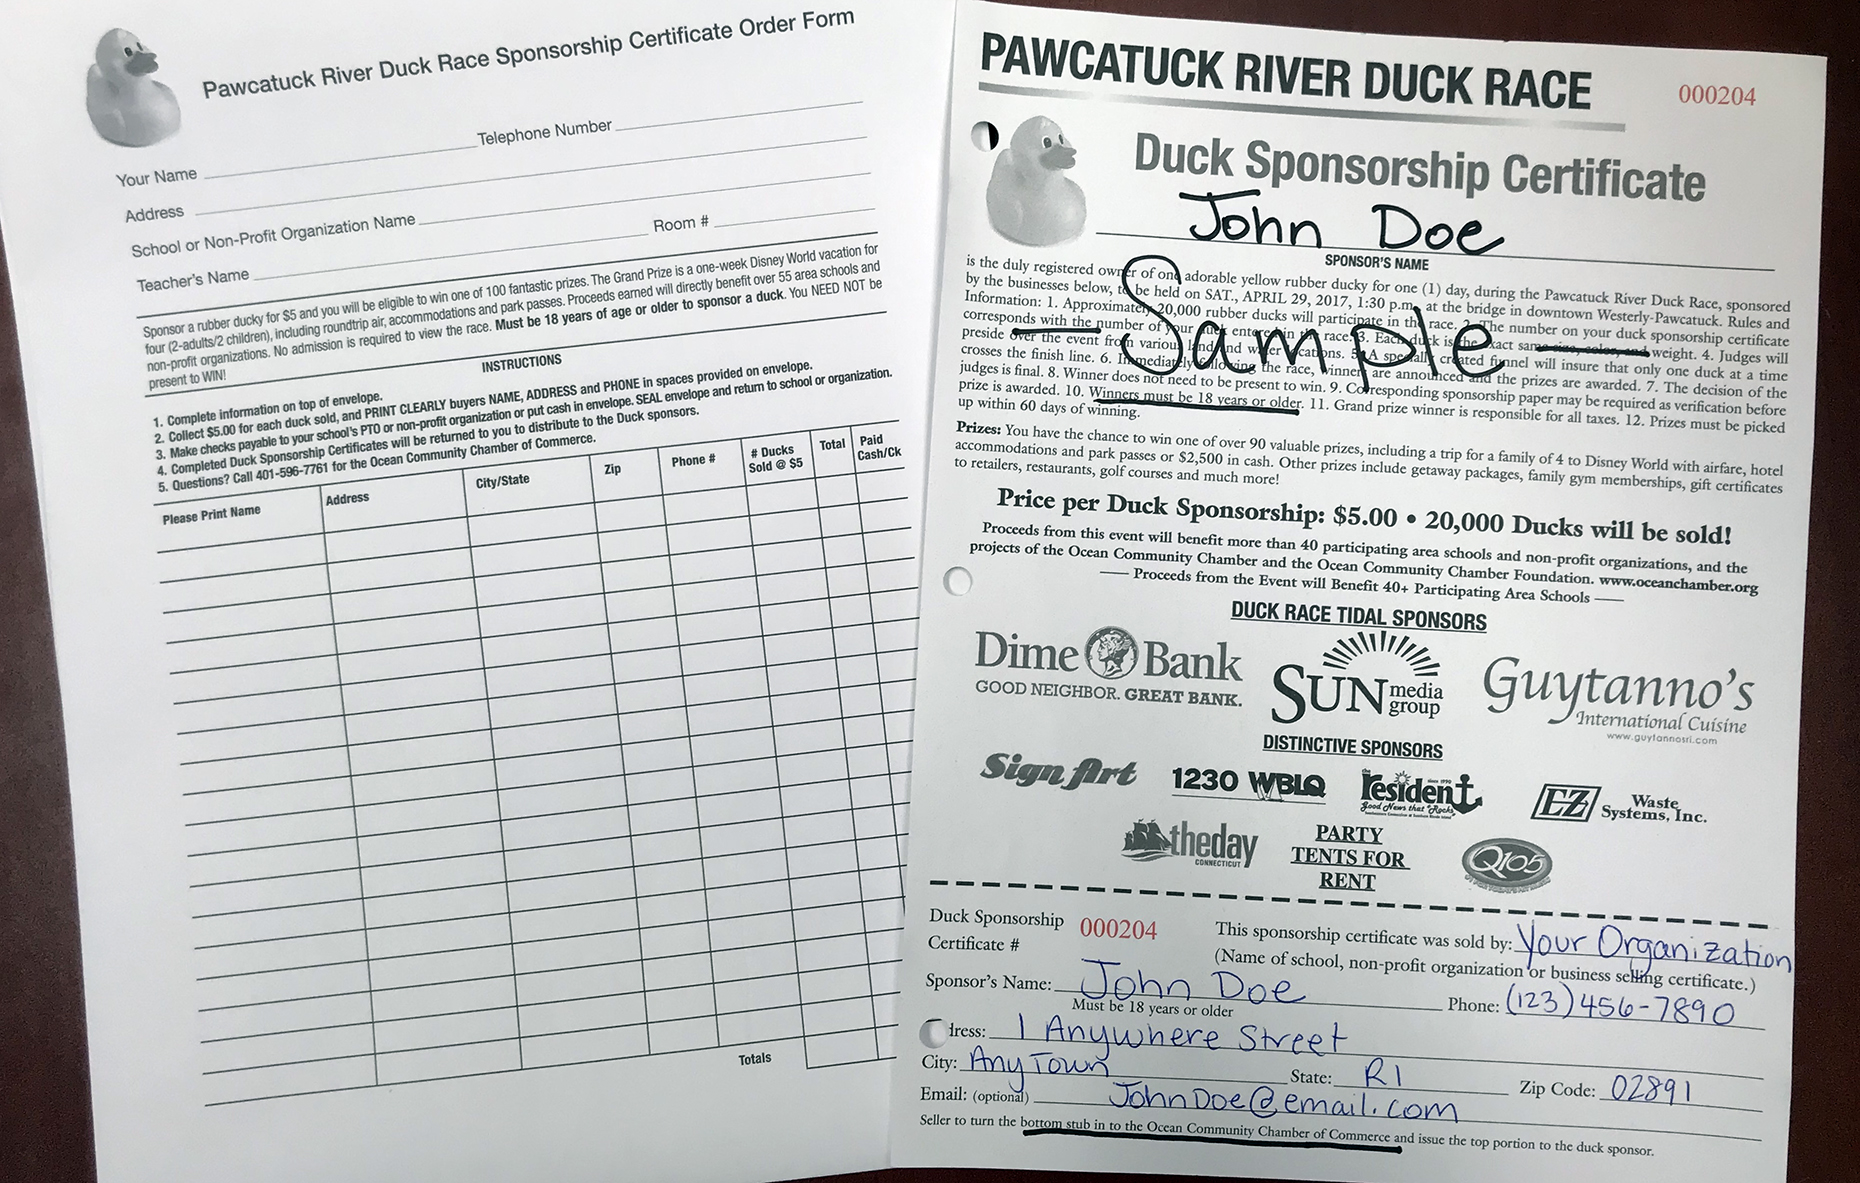 Pawcatuck River Duck Race Sponsorship Certificate Order Form
Your Name Telephone Number
Address
School or Non-Profit Organization Name
Teacher's Name Room #
Sponsor a rubber ducky for $5 and you will be eligible to win one of 100 fantastic prizes. The Grand Prize is a one-week Disney World vacation for
four (2-adults/2 children), including roundtrip air, accommodations and park passes. Proceeds earned will directly benefit over 55 area schools and
non-profit organizations. No admission is required to view the race. Must be 18 years of age or older to sponsor a duck. You NEED NOT be
present to WIN!
INSTRUCTIONS
1. Complete information on top of envelope.
2. Collect $5.00 for each duck sold, and PRINT CLEARLY buyers NAME, ADDRESS and PHONE in spaces provided on envelope.
3. Make checks payable to your school's PTO or non-profit organization or put cash in envelope. SEAL envelope and return to school or organization.
4. Completed Duck Sponsorship Certificates will be returned to you to distribute to the Duck sponsors.
5. Questions? Call 401-596-7761 for the Ocean Community Chamber of Commerce.
Please Print Name Address City/State Zip Phone # # Ducks Sold @ $5 Total Paid Cash/Ck
Totals
PAWCATUCK RIVER DUCK RACE 000204
Duck Sponsorship Certificate
John Doe
SPONSOR'S NAME
is the duly registered owner of one adorable yellow rubber ducky for one (1) day, during the Pawcatuck River Duck Race, sponsored
by the businesses below, to be held on SAT., APRIL 29, 2017, 1:30 p.m. at the bridge in downtown Westerly-Pawcatuck. Rules and
Information: 1. Approximately 20,000 rubber ducks will participate in the race. 2. The number on your duck sponsorship certificate
corresponds with the number of your duck entered in the race. 3. Each duck is the exact same size, color, and weight. 4. Judges will
preside over the event from various land and water locations. 5. A specially created funnel will insure that only one duck at a time
crosses the finish line. 6. Immediately following the race, winners are announced and the prizes are awarded. 7. The decision of the
judges is final. 8. Winner does not need to be present to win. 9. Corresponding sponsorship paper may be required as verification before
prize is awarded. 10. Winners must be 18 years or older. 11. Grand prize winner is responsible for all taxes. 12. Prizes must be picked
up within 60 days of winning.
Sample
Prizes: You have the chance to win one of over 90 valuable prizes, including a trip for a family of 4 to Disney World with airfare, hotel
accommodations and park passes or $2,500 in cash. Other prizes include getaway packages, family gym memberships, gift certificates
to retailers, restaurants, golf courses and much more!
Price per Duck Sponsorship: $5.00 • 20,000 Ducks will be sold!
Proceeds from this event will benefit more than 40 participating area schools and non-profit organizations, and the
projects of the Ocean Community Chamber and the Ocean Community Chamber Foundation. www.oceanchamber.org
Proceeds from the Event will Benefit 40+ Participating Area Schools
DUCK RACE TIDAL SPONSORS
Dime Bank
GOOD NEIGHBOR. GREAT BANK.
SUN media group
Guytanno's
International Cuisine
www.guytannosri.com
DISTINCTIVE SPONSORS
Sign Art 1230 WBLQ
the resident since 1990
Good News that "Rocks"
EZ Waste Systems, Inc.
theday
CONNECTICUT
PARTY
TENTS FOR
RENT
Q105
Duck Sponsorship
Certificate # 000204
This sponsorship certificate was sold by: Your Organization
(Name of school, non-profit organization or business selling certificate.)
Sponsor's Name: John Doe Phone: (123)456-7890
Must be 18 years or older
dress: 1 Anywhere Street
City: AnyTown State: RI Zip Code: 02891
Email: (optional) JohnDoe@email.com
Seller to turn the bottom stub in to the Ocean Community Chamber of Commerce and issue the top portion to the duck sponsor.